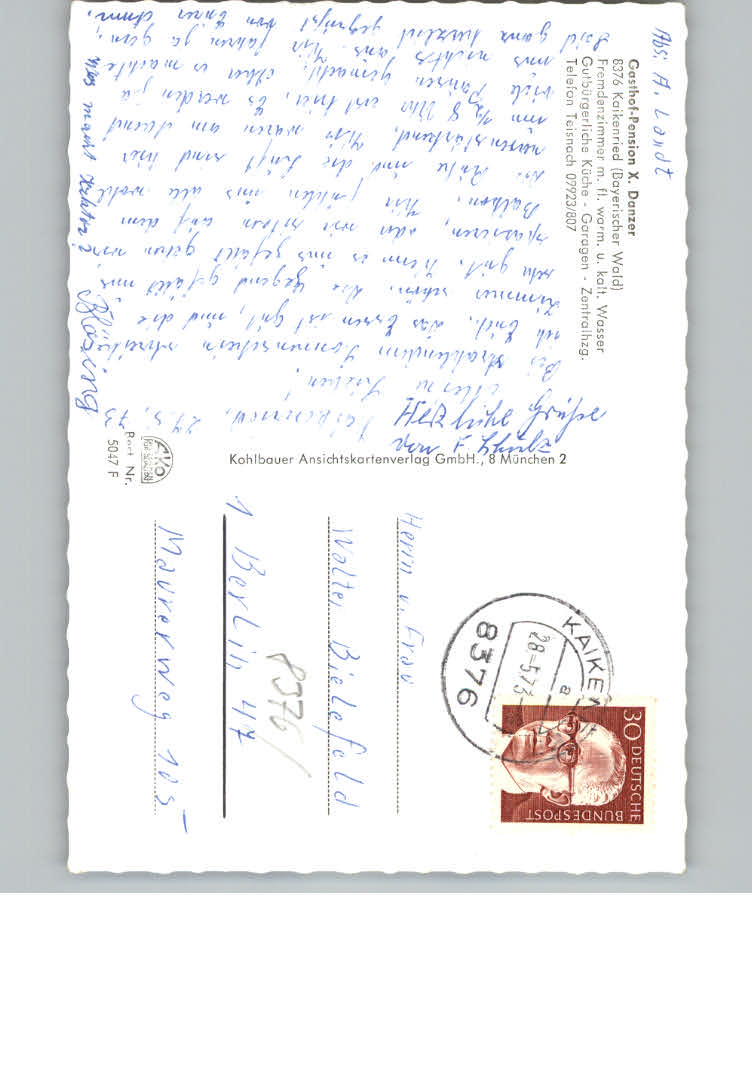 Abs: A. Landt
Gasthof-Pension X. Danzer
8376 Kaikenried (Bayerischer Wald)
Fremdenzimmer m. fl. warm. u. kalt. Wasser
Gutbürgerliche Küche - Garagen - Zentralhzg.
Telefon Teisnach 09923/807
27.5.73
Meine Lieben!
Bei strahlendem Sonnenschein schreiben
wir Euch. Das Essen ist gut, und die
Zimmer schön. Die Gegend gefällt uns
sehr gut. Wenn es uns gefällt gehen wir
spazieren, oder wir sitzen auf dem
Balkon. Wir fühlen uns alle wohl
die Ruhe und die Luft sind hier
nervenstärkend. Wir waren am Abend
um 1/2 8 Uhr erst hier. Es werden ja
viele Pausen gemacht. Aber es machte
uns nichts aus. Wir fahren ja gern.
Seid ganz herzlich gegrüßt von Eurer
Was macht
Herzliche Grüße
von F. Schulz
Kohlbauer Ansichtskartenverlag GmbH., 8 München 2
AKO
Best. Nr.
5047 F
Herrn u. Frau
Walter Bielefeld
1 Berlin 47
Maurerweg 105
8376/
KAIKEN
28.-5.73
a
8376
30 DEUTSCHE
BUNDESPOST